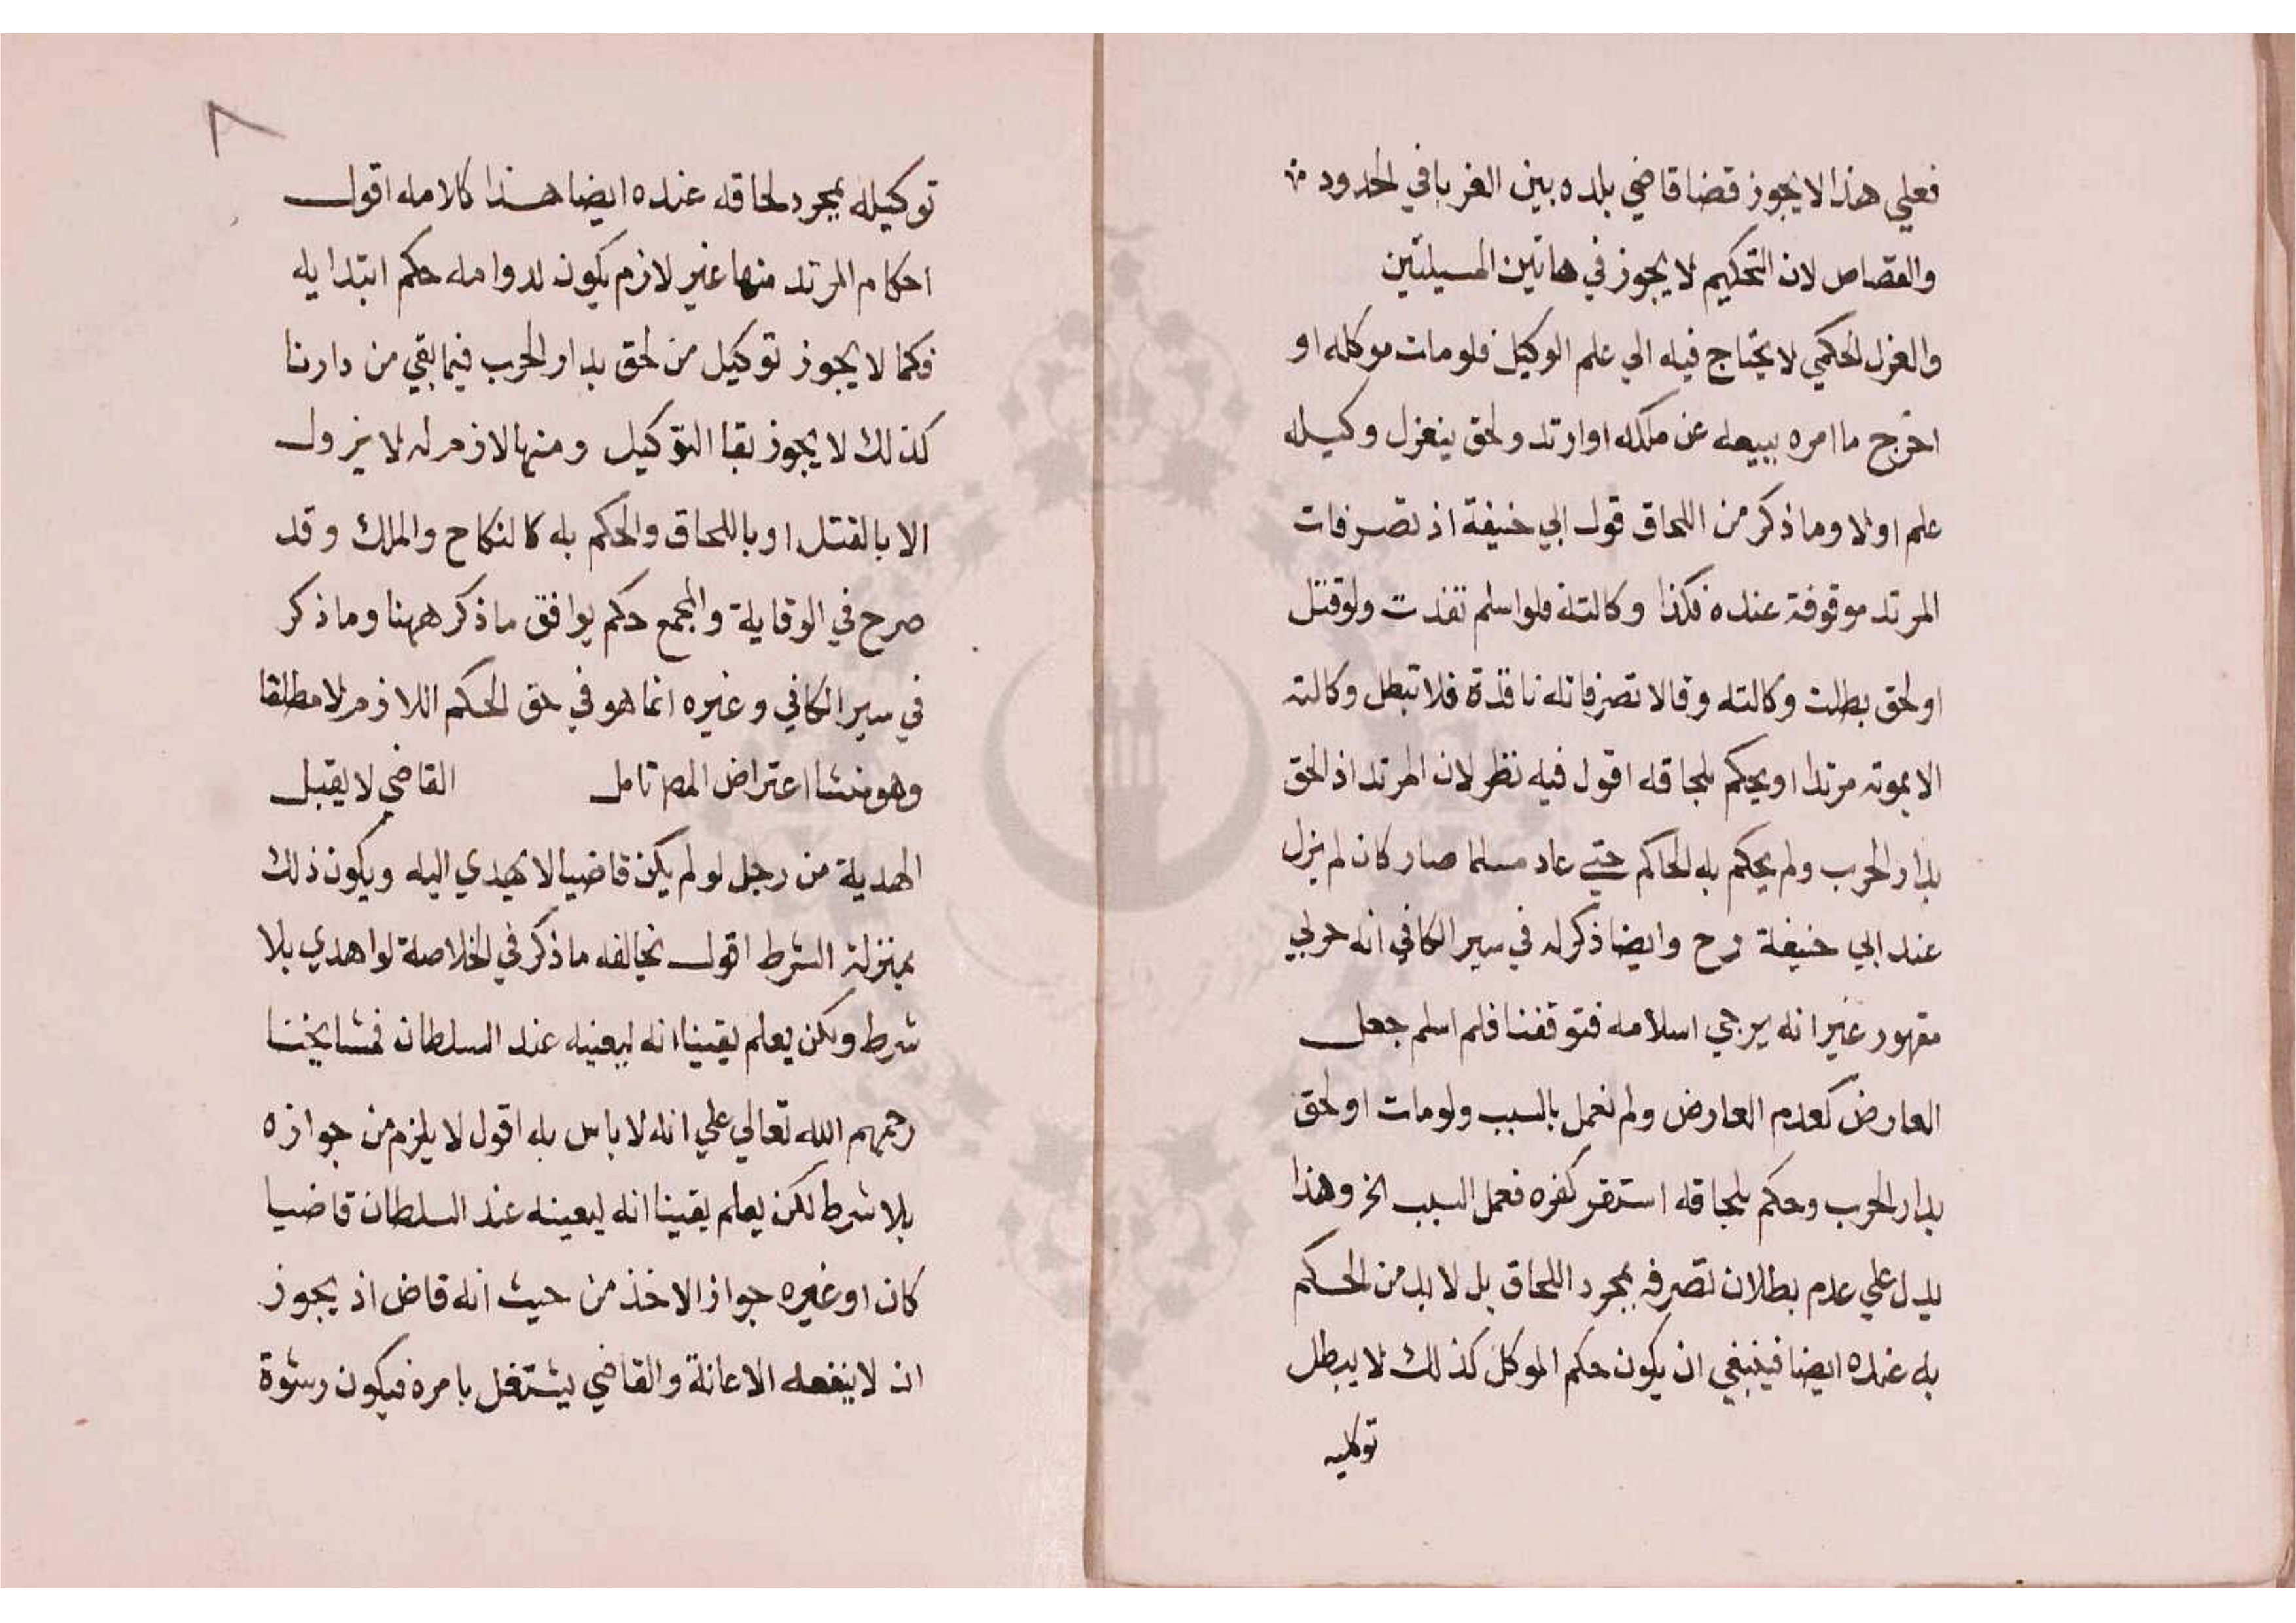 فعلي هذا لا يجوز قضا قاضي بلده بين الغربا في الحدود
والقصاص لان التحكيم لا يجوز في هاتين المسيلتين
والعزل الحكمي لا يحتاج فيه الي علم الوكيل فلو مات موكله او
اخرج ما امره ببيعه عن ملكه او ارتد ولحق ينعزل وكيله
علم او لا وما ذكر من اللحاق قول ابي حنيفة اذ تصرفات
المرتد موقوفة عنده فكذا وكالته فلو اسلم نفذت ولو قتل
او لحق بطلت وكالته وقالا تصرفاته نافذة فلا تبطل وكالته
الا بموته مرتدا او يحكم بلحاقه اقول فيه نظر لان المرتد اذ الحق
بدار الحرب ولم يحكم به الحاكم حتي عاد مسلما صار كان لم يزل
عند ابي حنيفة رح وايضا ذكر له في سير الكافي انه حربي
مقهور غير انه يرجي اسلامه فتوقفنا فلم اسلم جعل
العارض كعدم العارض ولم نعمل بالسبب ولو مات او لحق
بدار الحرب وحكم بلحاقه استقر كفره فعمل السبب الخ وهذا
يدل علي عدم بطلان تصرفه بمجرد اللحاق بل لا بد من الحكم
به عنده ايضا فينبغي ان يكون حكم الموكل كذلك لا يبطل
توكليه
٨
توكيله بمجرد لحاقه عنده ايضا هذا كلامه اقول
احكام المرتد منها غير لازم يكون لدوامه حكم ابتدايه
فكما لا يجوز توكيل من لحق بدار الحرب فيما بقي من دارنا
كذلك لا يجوز بقا التوكيل ومنها لازم له لا يزول
الا بالقتل او باللحاق والحكم به كالنكاح والملك وقد
صرح في الوقاية والمجمع حكم يوافق ما ذكر ههنا وما ذكر
في سير الكافي وغيره انما هو في حق الحكم اللازم لا مطلقا
وهو منشا اعتراض المص تامل القاضي لا يقبل
الهدية من رجل لو لم يكن قاضيا لا يهدي اليه ويكون ذلك
بمنزلة الشرط اقول يخالفه ما ذكر في الخلاصة لو اهدي بلا
شرط ولكن يعلم يقينا انه ليعينه عند السلطان فمشايخنا
رحمهم الله تعالي علي انه لا باس به اقول لا يلزم من جوازه
بلا شرط لكن يعلم يقينا انه ليعينه عند السلطان قاضيا
كان او غيره جواز الاخذ من حيث انه قاض اذ يجوز
ان لا ينفعه الاعانة والقاضي يشتغل بامره فيكون رشوة